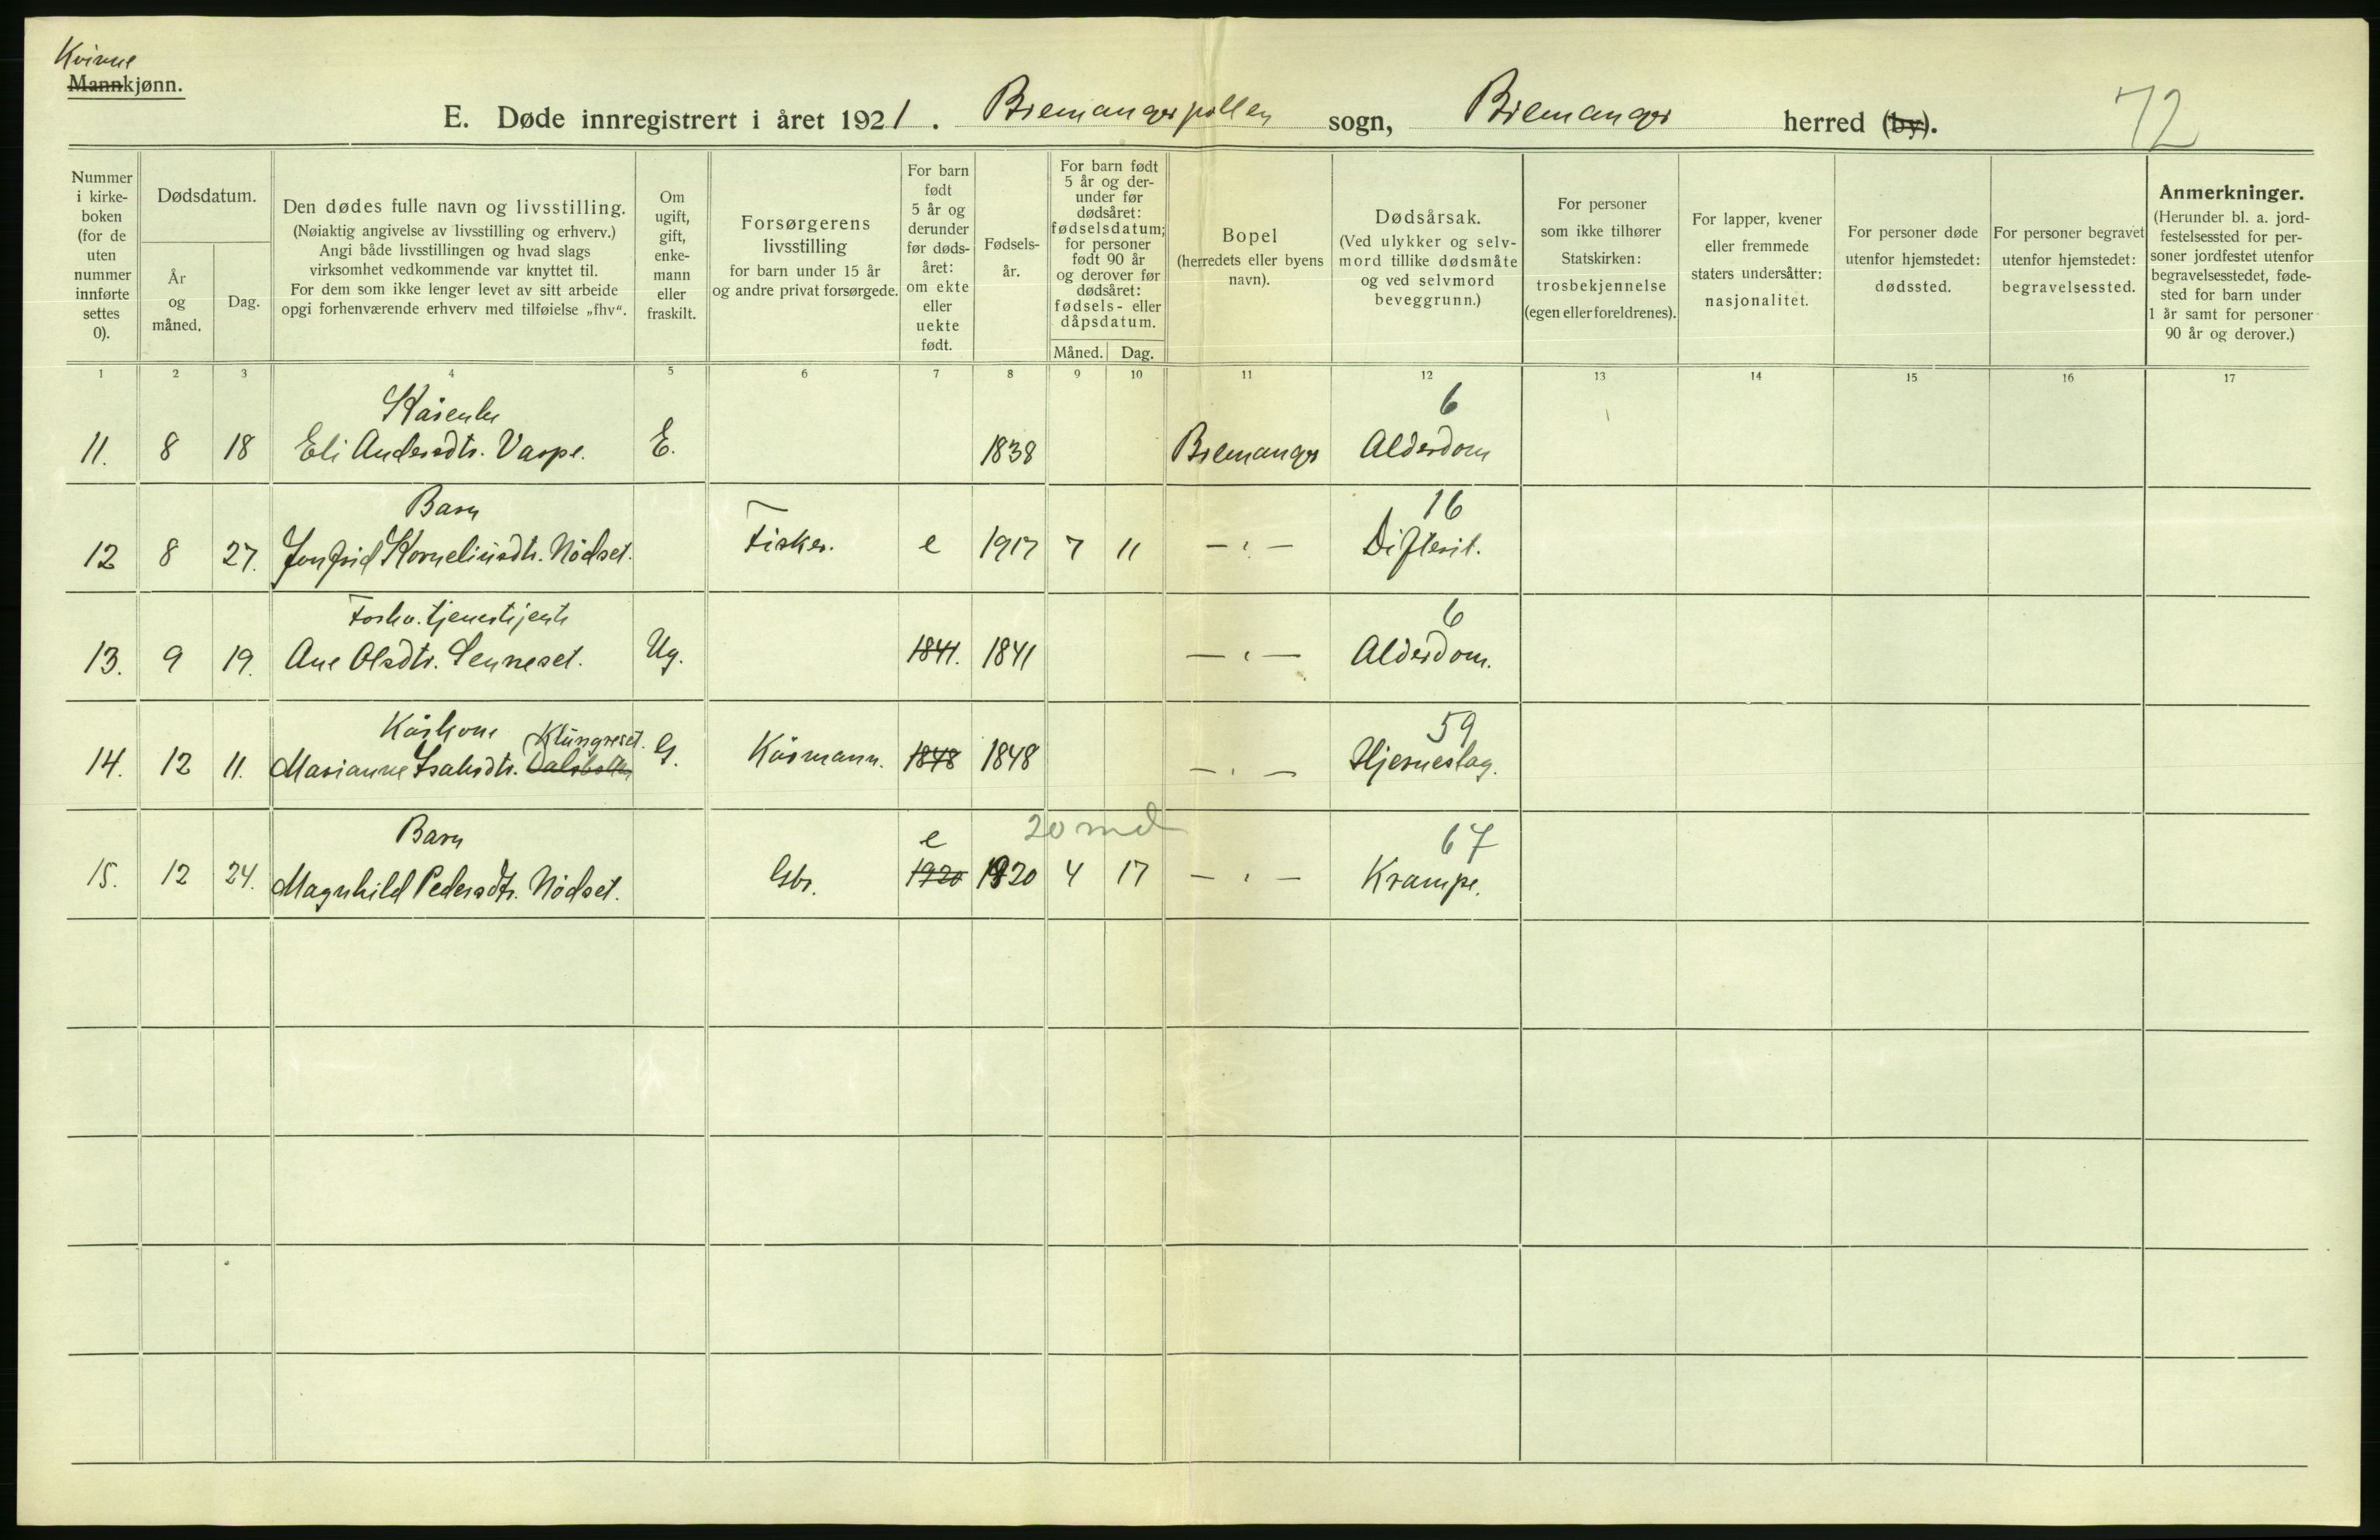 Kvinne
Mannkjønn.
E. Døde innregistrert i året 1921. Bremangerpollen sogn, Bremanger herred (by).
72
Nummer i kirkeboken (for de uten nummer innførte settes 0).
Dødsdatum.
År og måned.
Dag.
Den dødes fulle navn og livsstilling.
(Nøiaktig angivelse av livsstilling og erhverv.)
Angi både livsstillingen og hvad slags
virksomhet vedkommende var knyttet til.
For dem som ikke lenger levet av sitt arbeide
opgi forhenværende erhverv med tilføielse „fhv“.
Om ugift, gift, enkemann eller fraskilt.
Forsørgerens livsstilling
for barn under 15 år
og andre privat forsørgede.
For barn født 5 år og derunder før dødsåret: om ekte eller uekte født.
Fødselsår.
For barn født 5 år og derunder før dødsåret: fødselsdatum; for personer født 90 år og derover før dødsåret: fødsels- eller dåpsdatum.
Måned. Dag.
Bopel
(herredets eller byens navn).
Dødsårsak.
(Ved ulykker og selvmord tillike dødsmåte og ved selvmord beveggrunn.)
For personer som ikke tilhører Statskirken: trosbekjennelse (egen eller foreldrenes).
For lapper, kvener eller fremmede staters undersåtter: nasjonalitet.
For personer døde utenfor hjemstedet: dødssted.
For personer begravet utenfor hjemstedet: begravelsessted.
Anmerkninger.
(Herunder bl. a. jordfestelsessted for personer jordfestet utenfor begravelsesstedet, fødested for barn under 1 år samt for personer 90 år og derover.)
1 2 3 4 5 6 7 8 9 10 11 12 13 14 15 16 17
Kårenke 6
11. 8 18 Eli Andersdtr. Varpe. E. 1838 Bremanger Alderdom
Barn 16
12 8 27. Jonfrid Korneliusdtr. Nödset. Fisker. e 1917 7 11 — " — Difterit.
Forhv. tjenestjente 6
13. 9 19. Ane Olsdtr. Senneset. Ug. 1841. 1841 — " — Alderdom.
Kårkone Klungreset. 59
14. 12 11. Marianne Isaksdtr. G. Kårmann. 1848 1848 — " — Hjerneslag.
Barn e 20 md 67
15. 12 24. Magnhild Pedersdtr. Nödset. Gbr. 1920 1920 4 17 — " — Krampe.